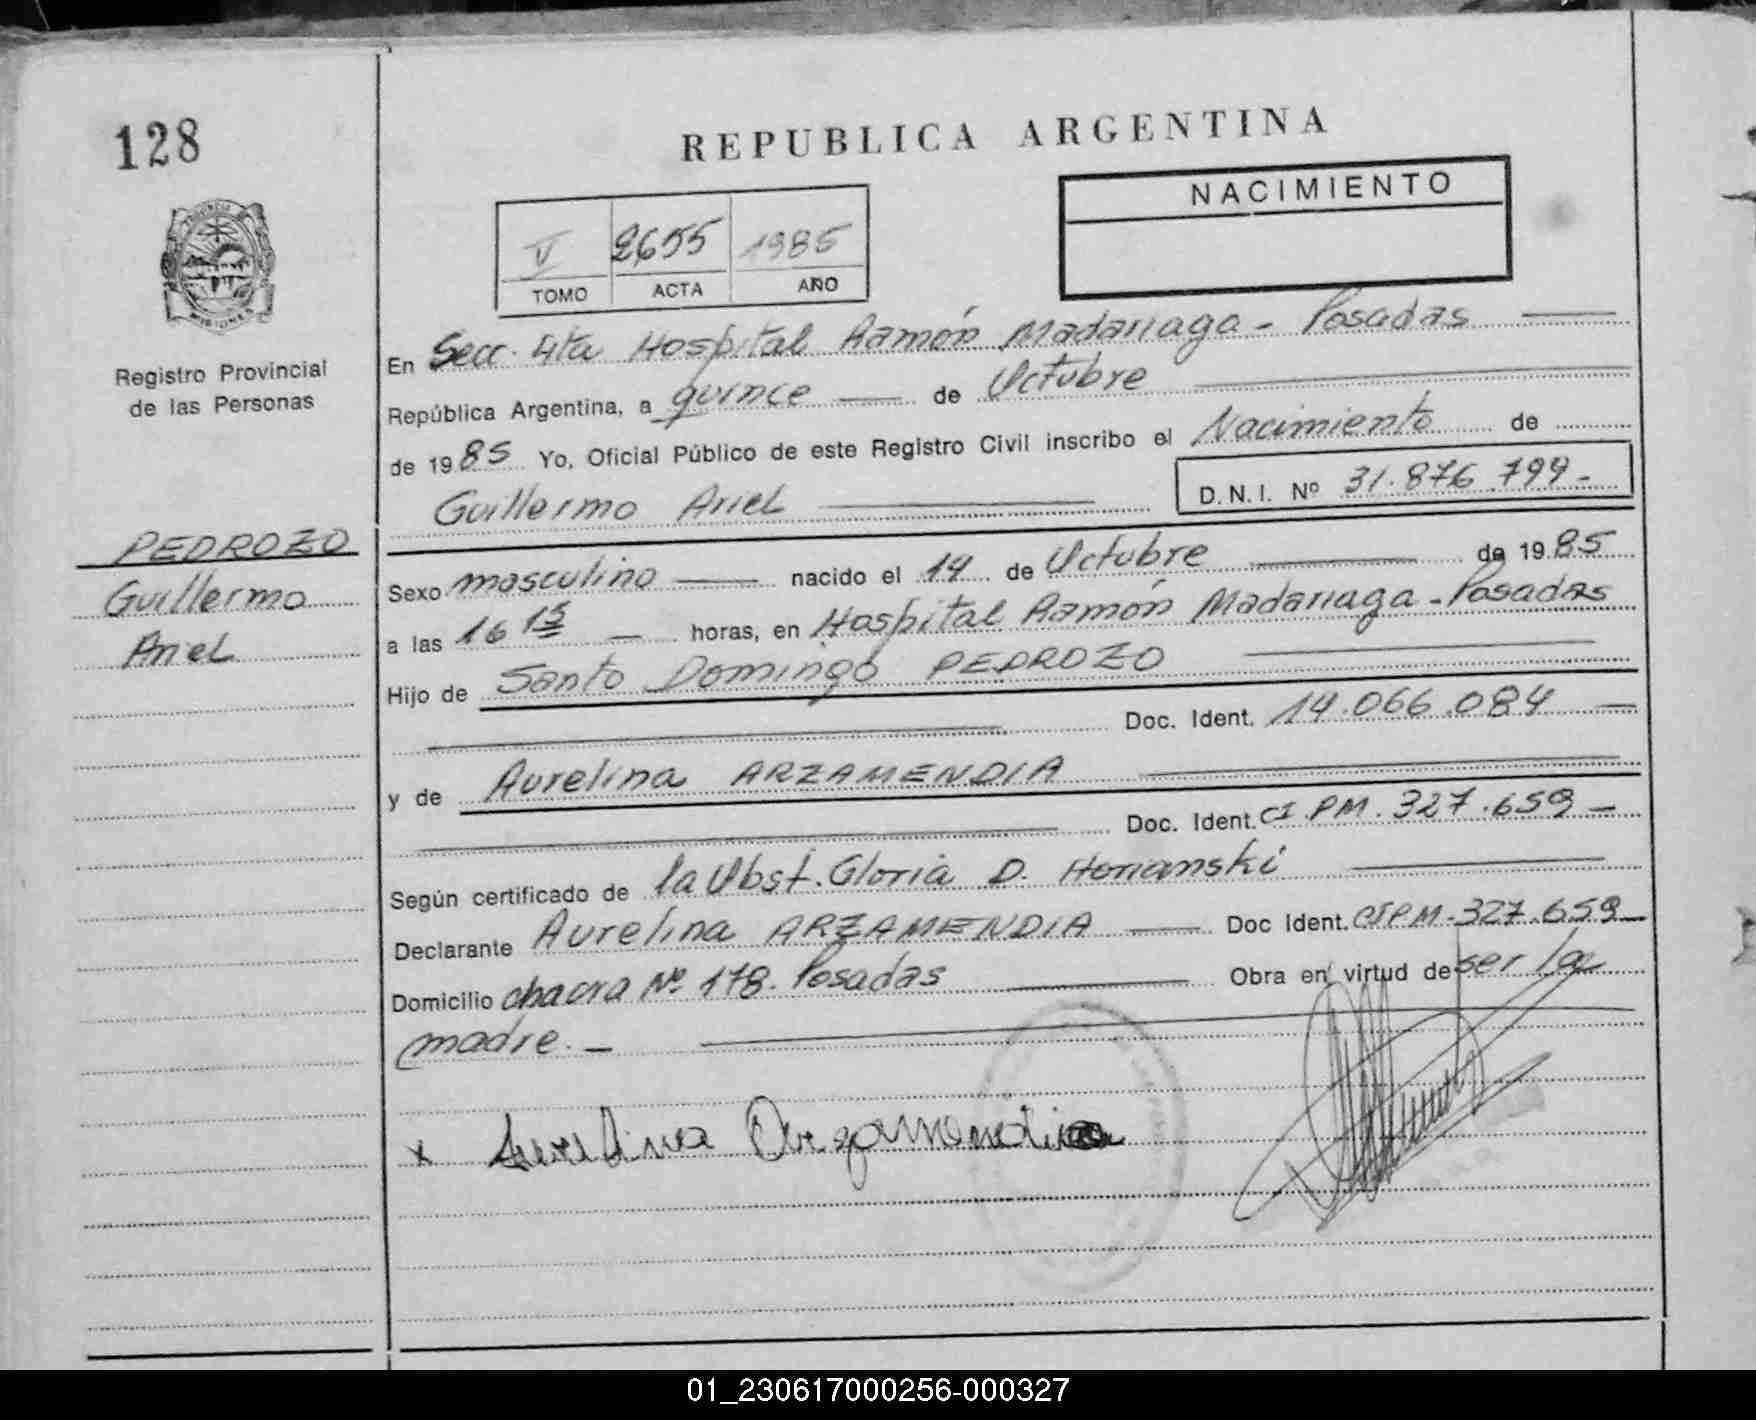 128
REPUBLICA ARGENTINA
NACIMIENTO
V 2655 1985
TOMO ACTA AÑO
PROVINCIA
MISIONES
Registro Provincial
de las Personas
En Secc. 4ta Hospital Ramón Madariaga - Posadas
República Argentina, a quince de Octubre
de 1985 Yo, Oficial Público de este Registro Civil inscribo el Nacimiento de
Guillermo Ariel D.N.I. Nº 31.876.799-
PEDROZO
Guillermo
Ariel
Sexo masculino nacido el 14 de Octubre de 1985
a las 16 15 horas, en Hospital Ramón Madariaga - Posadas
Hijo de Santo Domingo PEDROZO
Doc. Ident. 14.066.084
y de Aurelina ARZAMENDIA
Doc. Ident. CI.PM. 327.659
Según certificado de la Obst. Gloria D. Horianski
Declarante Aurelina ARZAMENDIA Doc Ident. CIPM. 327.659
Domicilio chacra Nº 178. Posadas Obra en virtud de ser la
madre. -
x Aurelina Arzamendia
01_230617000256-000327